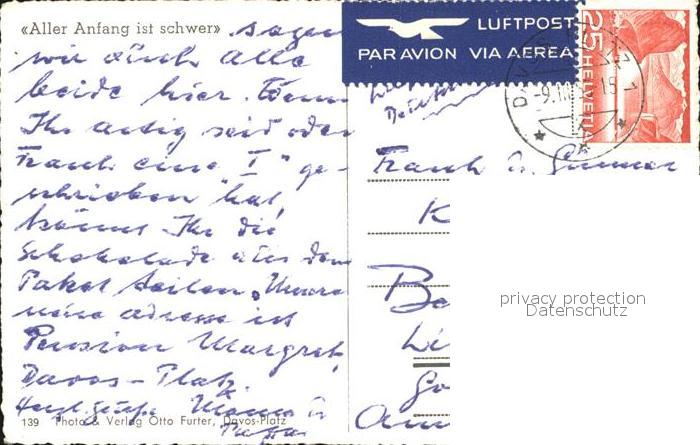 «Aller Anfang ist schwer» sagen
wir auch alle
beide hier. Wenn
Ihr artig seid oder
Frank eine "1" ge-
schrieben hat,
könnt Ihr die
Schokolade aus dem
Paket teilen. Unsere
neue Adresse ist
Pension Margret,
Davos-Platz.
Herzl. Grüße Mama u.
Papa
139 Photo & Verlag Otto Furter, Davos-Platz
LUFTPOST
PAR AVION VIA AEREA
25 HELVETIA
Frank u. Gunnar
K
Be
Li
Go
Am
privacy protection
Datenschutz